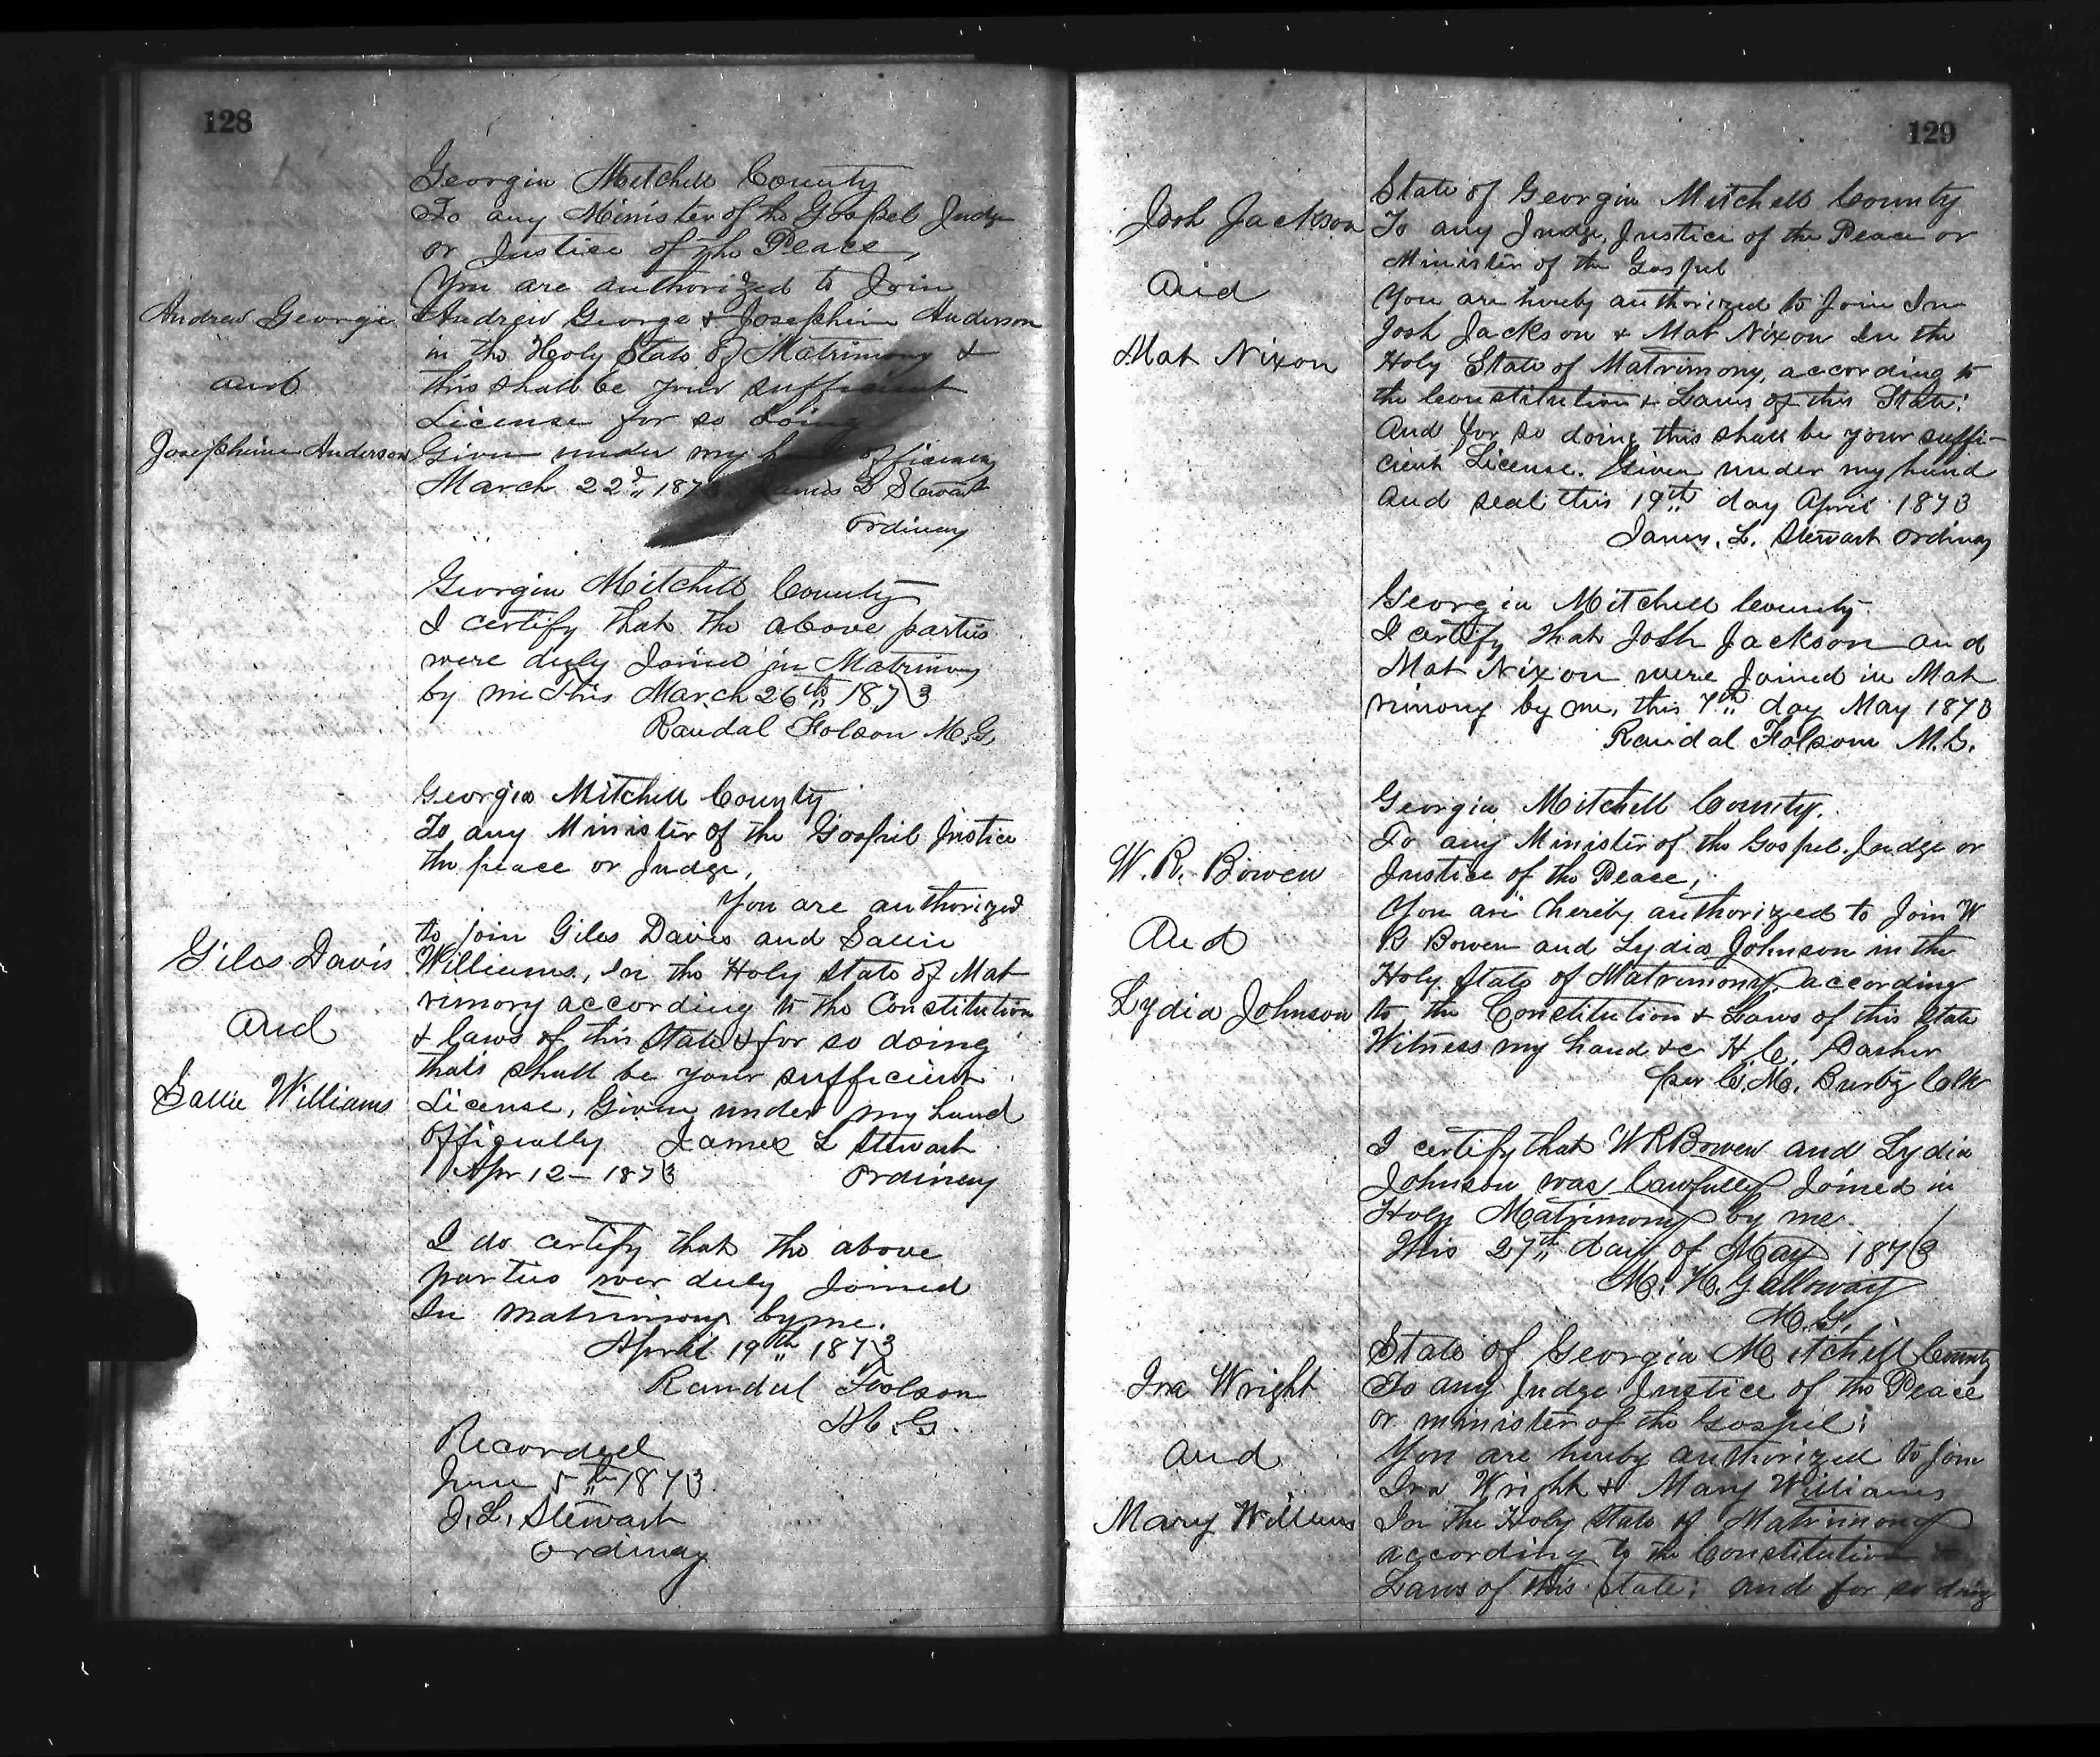 128
Georgia Mitchell County
To any Minister of the Gospel Judge
or Justice of the Peace,
You are authorized to Join
Andrew George & Josephine Anderson
in the Holy State of Matrimony &
this shall be your sufficient
License for so doing
Given under my officially
March 22d 187 James L Stewart
Ordinary
Andrew George
and
Josephine Anderson
Georgia Mitchell County
I certify that the above parties
were duly Joined in Matrimony
by me This March 26th 1873
Randal Folson M.G.
Georgia Mitchell County
To any Minister of the Gospel Justice
the peace or Judge,
You are authorized
to join Giles Davis and Sallie
Williams, in the Holy State of Mat
rimony according to the Constitution
& laws of this State & for so doing
this shall be your sufficient
License, Given under my hand
officially James L Stewart
Apr 12 - 1873 Ordinary
Giles Davis
and
Sallie Williams
I do certify that the above
parties wer duly Joined
In matrimony by me.
April 19th 1873
Randal Foolson
M.G.
Recorded
June 5th 1873
J. L. Stewart
Ordinary
129
Josh Jackson
and
Mat Nixon
State of Georgia Mitchell County
To any Judge, Justice of the Peace or
Minister of the Gospel
You are hereby authorized to Join In
Josh Jackson & Mat Nixon In the
Holy State of Matrimony, according to
the Constitution & Laws of this State:
And for so doing this shall be your suffi-
cient License. Given under my hand
and seal this 19th day April 1873
James. L. Stewart Ordinary
Georgia Mitchell County
I certify that Josh Jackson and
Mat Nixon were Joined in Mat
rimony by me, this 7th day May 1873
Randal Folsom M.G.
W. R. Bowen
And
Lydia Johnson
Georgia Mitchell County.
To any Minister of the Gospel. Judge or
Justice of the Peace,
You are hereby authorized to Join W
B Bowen and Lydia Johnson in the
Holy State of Matrimony according
to the Constitution & Laws of this State
Witness my hand &c H. C. Dasher
per C. M. Burby Clk
I certify that W R Bowen and Lydia
Johnson was lawfully Joined in
Holy Matrimony by me.
This 27th day of May 1873
M. H. Galloway
M. G.
Ira Wright
and
Mary Willims
State of Georgia Mitchell County
To any Judge Justice of the Peace
or minister of the Gospel:
You are hereby authorized to Join
Ira Wright & Mary Williams
In the Holy State of Matrimony
according to the Constitution &
Laws of this State: and for so doing